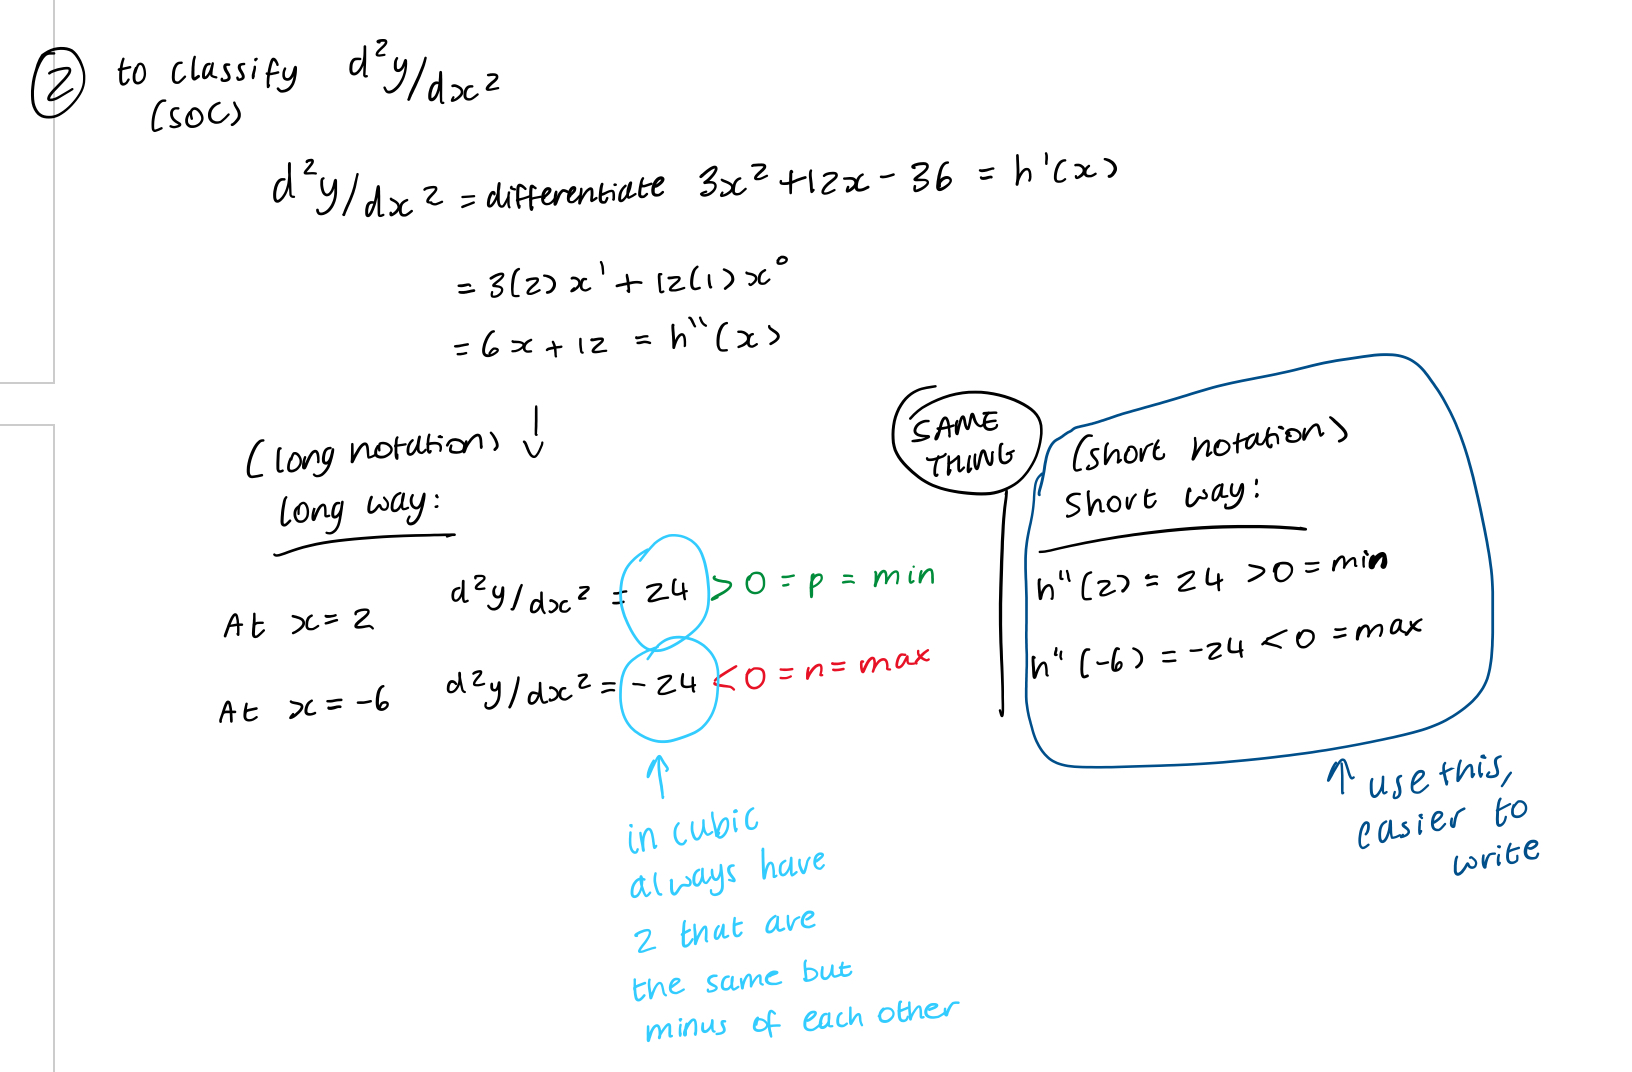 ② to classify d²y/dx²
(SOC)
d²y/dx² = differentiate 3x² + 12x - 36 = h'(x)
= 3(2)x¹ + 12(1)x⁰
= 6x + 12 = h''(x)
(long notation) ↓
long way:
At x = 2 d²y/dx² = 24 > 0 = p = min
At x = -6 d²y/dx² = -24 < 0 = n = max
↑
in cubic
always have
2 that are
the same but
minus of each other
SAME
THING
(short notation)
Short way:
h''(2) = 24 > 0 = min
h''(-6) = -24 < 0 = max
↑ use this,
easier to
write